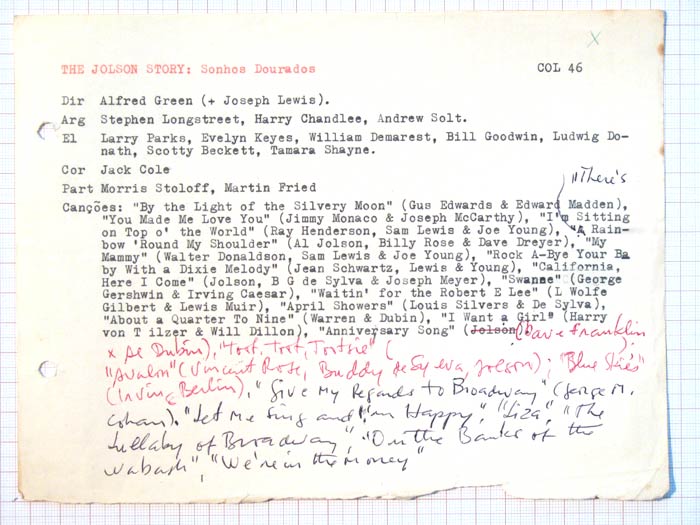 x
THE JOLSON STORY: Sonhos Dourados COL 46
Dir Alfred Green (+ Joseph Lewis).
Arg Stephen Longstreet, Harry Chandlee, Andrew Solt.
El Larry Parks, Evelyn Keyes, William Demarest, Bill Goodwin, Ludwig Do-
nath, Scotty Beckett, Tamara Shayne.
Cor Jack Cole
Part Morris Stoloff, Martin Fried
"There's
Canções: "By the Light of the Silvery Moon" (Gus Edwards & Edward Madden),
"You Made Me Love You" (Jimmy Monaco & Joseph McCarthy), "I'm Sitting
on Top o' the World" (Ray Henderson, Sam Lewis & Joe Young), "A Rain-
bow 'Round My Shoulder" (Al Jolson, Billy Rose & Dave Dreyer), "My
Mammy" (Walter Donaldson, Sam Lewis & Joe Young), "Rock A-Bye Your Ba
by With a Dixie Melody" (Jean Schwartz, Lewis & Young), "California,
Here I Come" (Jolson, B G de Sylva & Joseph Meyer), "Swanee" (George
Gershwin & Irving Caesar), "Waitin' for the Robert E Lee" (L Wolfe
Gilbert & Lewis Muir), "April Showers" (Louis Silvers & De Sylva),
"About a Quarter To Nine" (Warren & Dubin), "I Want a Girl" (Harry
von T ilzer & Will Dillon), "Anniversary Song" (Jolson). (Dave Franklin
x Al Dubin), "Toot, Toot, Tootsie" (
"Avalon" (Vincent Rose, Buddy de Sylva, Jolson); "Blue Skies"
(Irving Berlin), "Give My Regards to Broadway" (George M.
Cohan). "Let Me Sing and I'm Happy", "Liza", "The
Lullaby of Broadway", "On the Banks of the
Wabash", "We're in the Money"